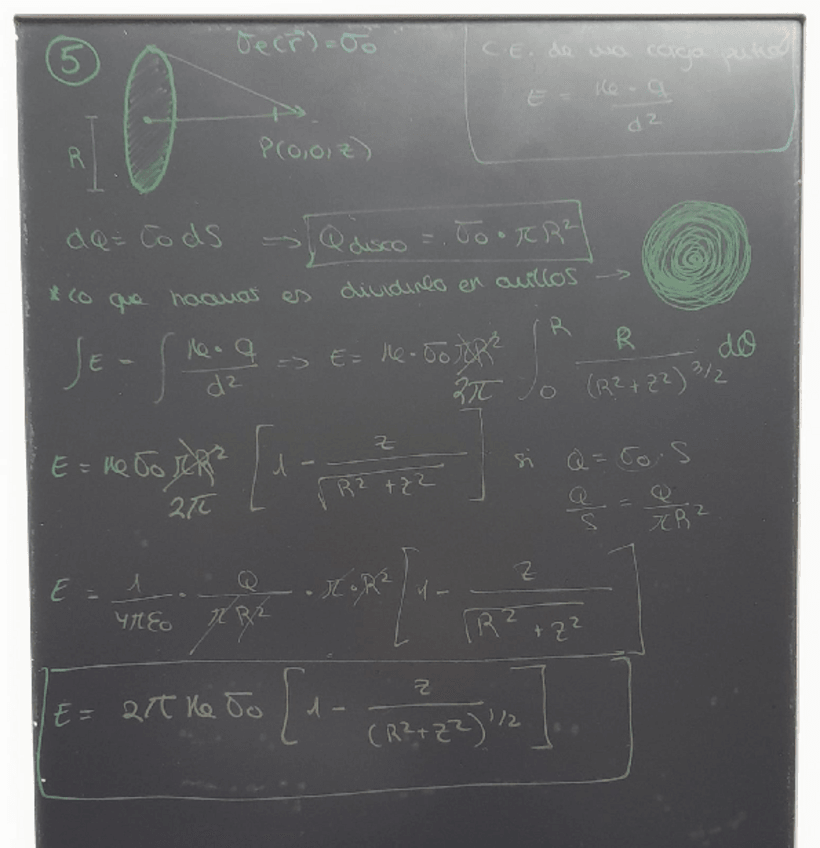 5
σe(r⃗)=σ₀
C.E. de una carga puntual
E = Ke · q / d²
R
P(0,0,z)
dQ = σ₀ dS ⟹ Q disco = σ₀ · πR²
* Lo que hacemos es dividirlo en anillos →
∫E = ∫ Ke · q / d² ⟹ E = Ke · σ₀ πR² 2π ∫₀ᴿ R / (R²+z²)^3/2 dθ
E = Ke σ₀ πR² 2π [1 - z / √(R²+z²)] si Q = σ₀ · S
Q/S = Q/πR²
E = 1/4πε₀ · Q/πR² · π·R² [1 - z / √(R²+z²)]
E = 2π Ke σ₀ [1 - z / (R²+z²)^1/2]